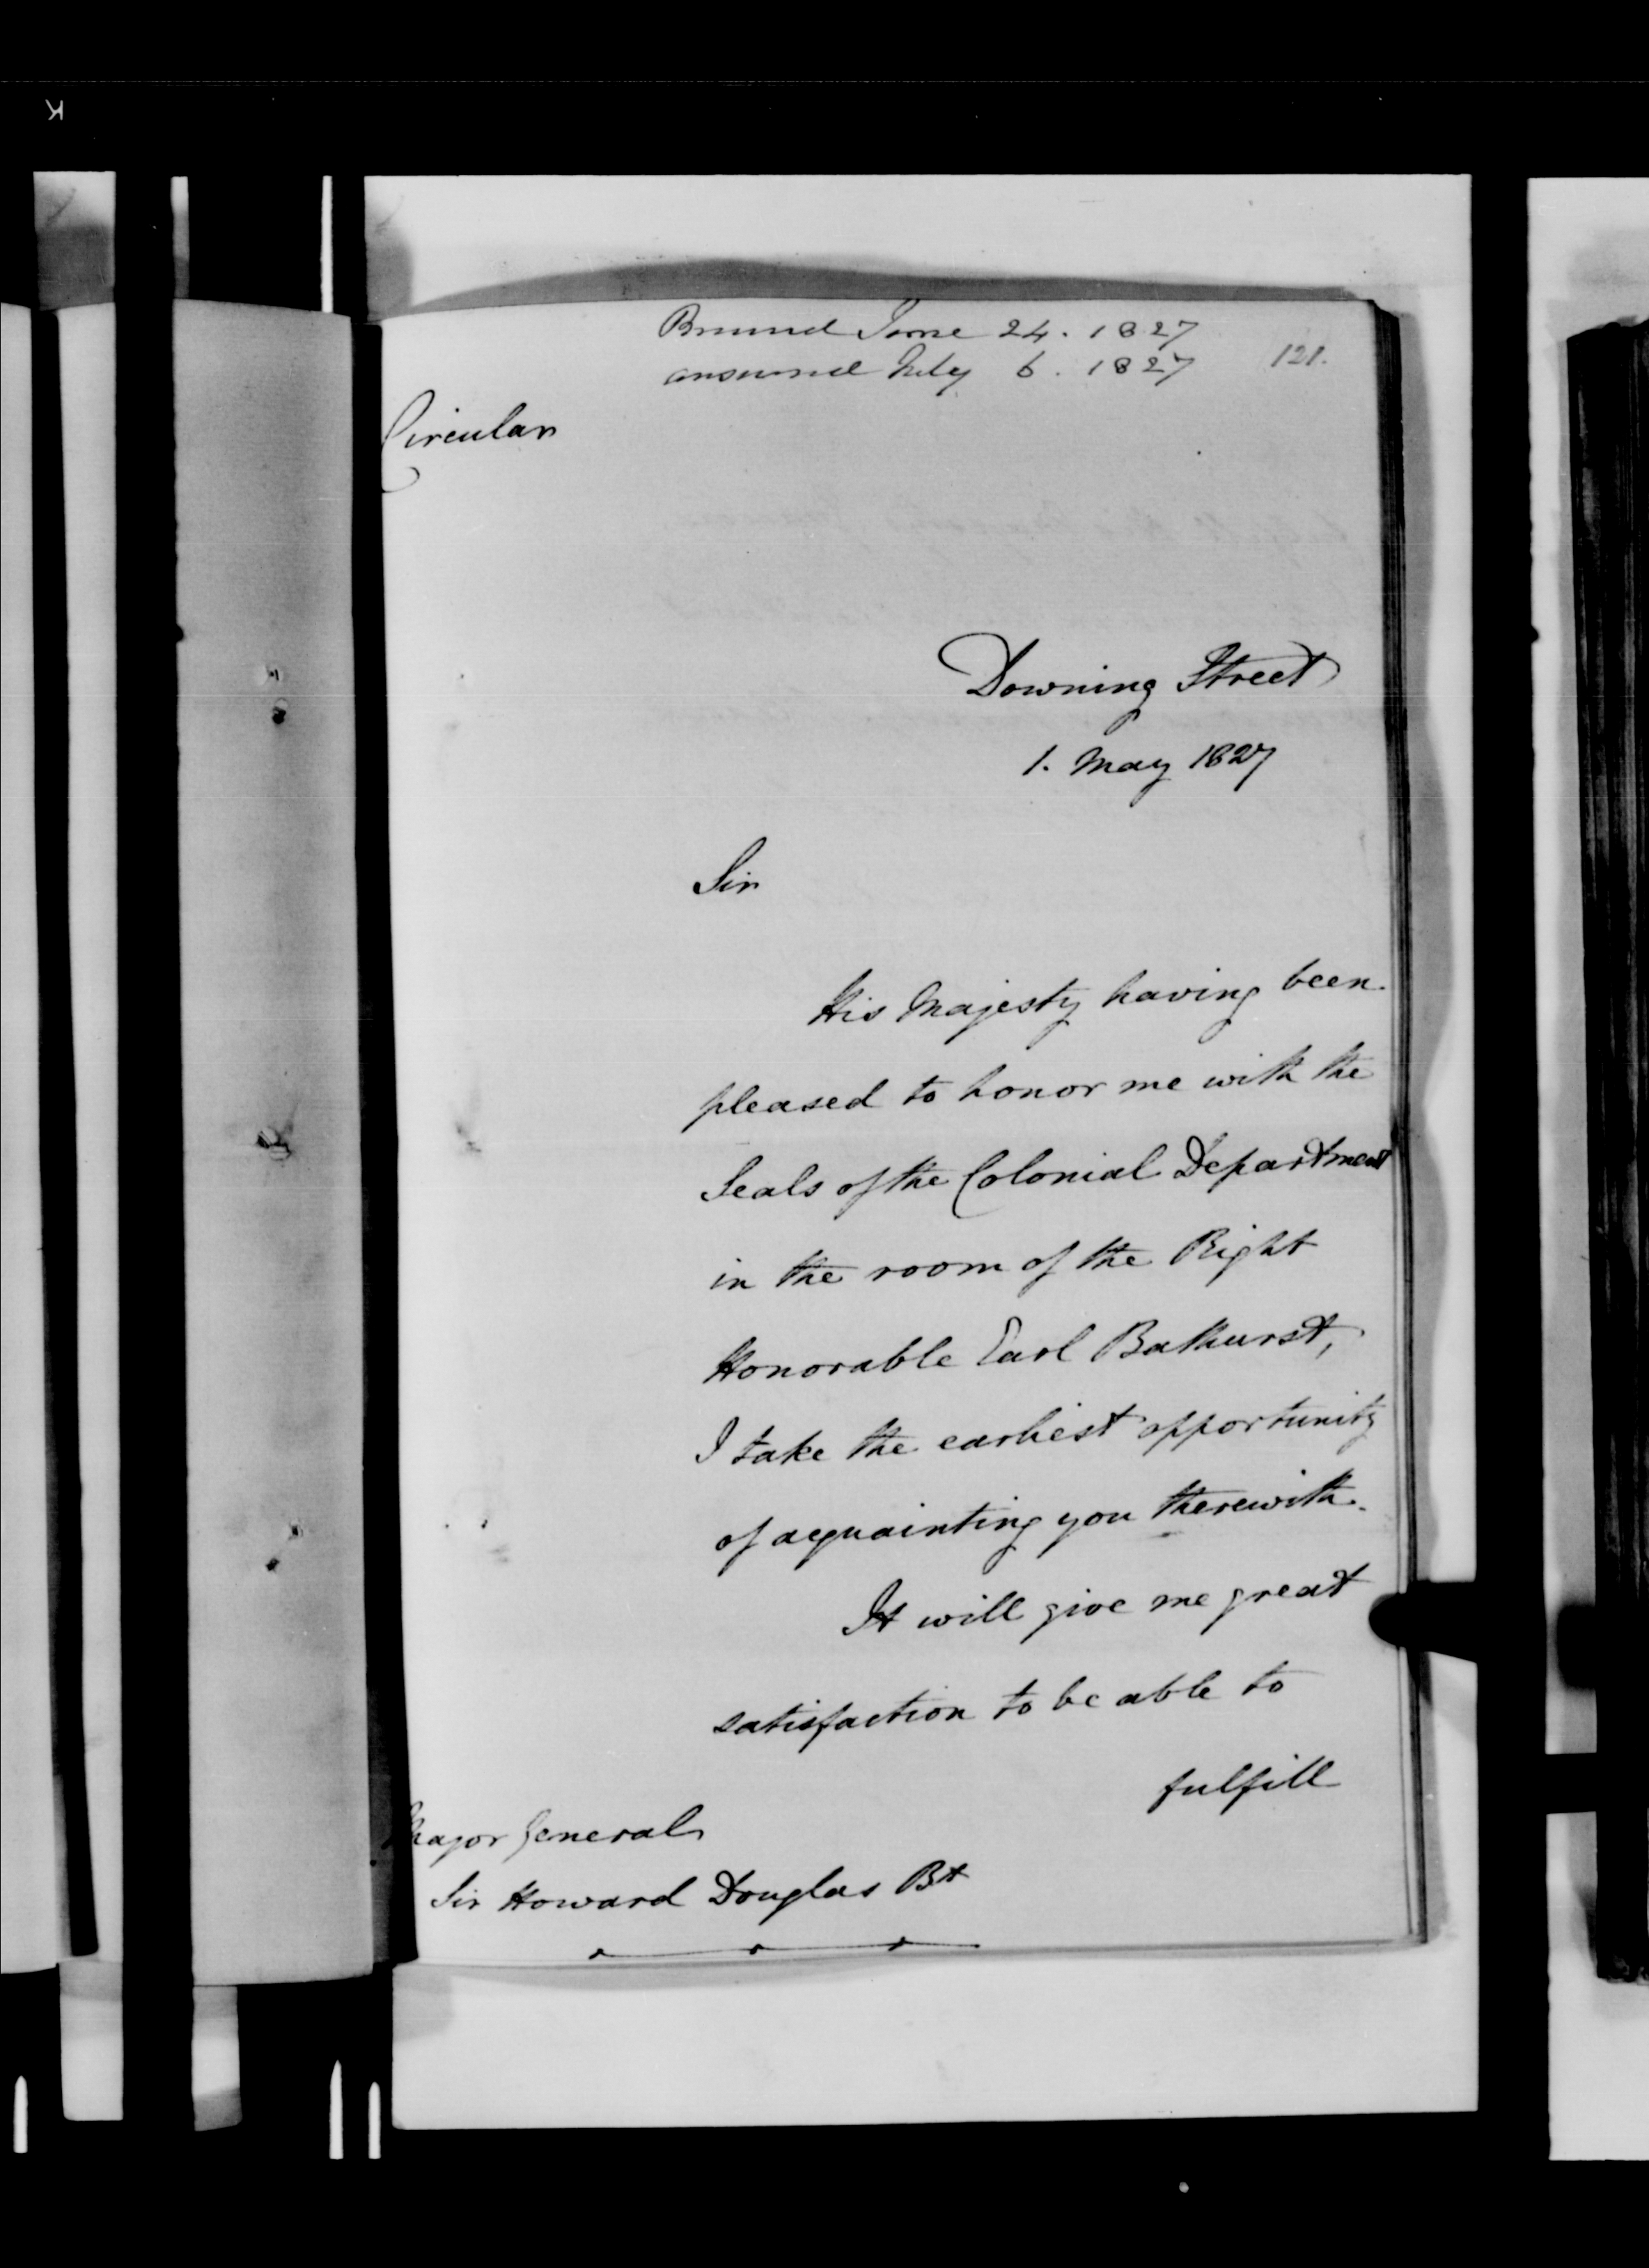 Received June 24. 1827
answered July 6. 1827
121.
Circular
Downing Street
1. May 1827
Sir
His Majesty having been
pleased to honor me with the
Seals of the Colonial Department
in the room of the Right
Honorable Earl Bathurst,
I take the earliest opportunity
of acquainting you therewith.
It will give me great
satisfaction to be able to
fulfill
Major General
Sir Howard Douglas Bt